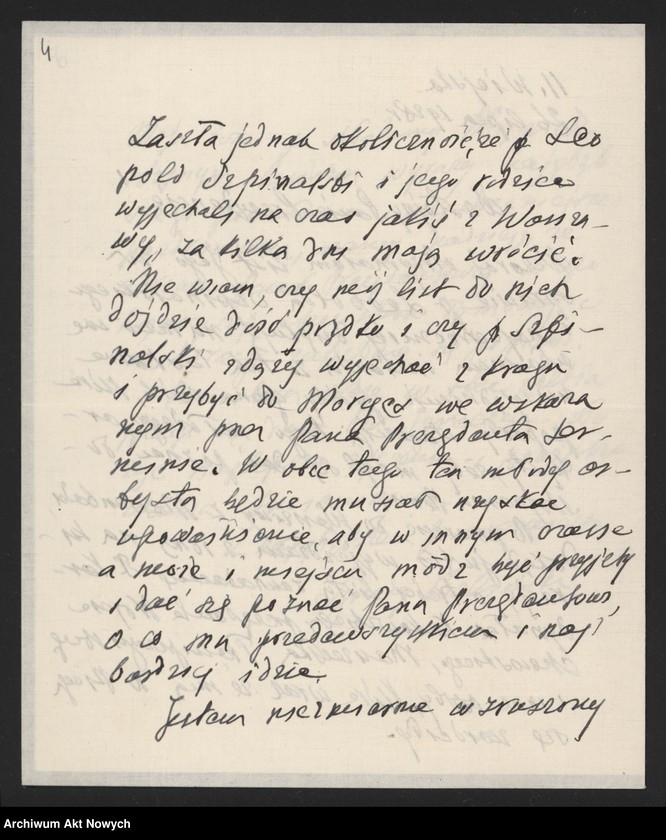 4
Zaszła jednak okoliczność, że p. Leo
pold Szpinalski i jego rodzice
wyjechali na czas jakiś z Warsza-
wy, za kilka dni mają wrócić.
Nie wiem, czy mój list do nich
dojdzie dość prędko i czy p. Szpi-
nalski zdąży wyjechać z kraju
i przybyć do Morges we wskaza
nym przez Pana Prezydenta ter-
minie. W obec tego ten młody ar-
tysta będzie musiał uzyskać
upoważnienie, aby w innym czasie
a może i miejscu módz być przyjęty
i dać się poznać Panu Prezydentowi,
o co mu przedewszystkiem i naj
bardziej idzie.
Jestem niezmiernie wzruszony
Archiwum Akt Nowych